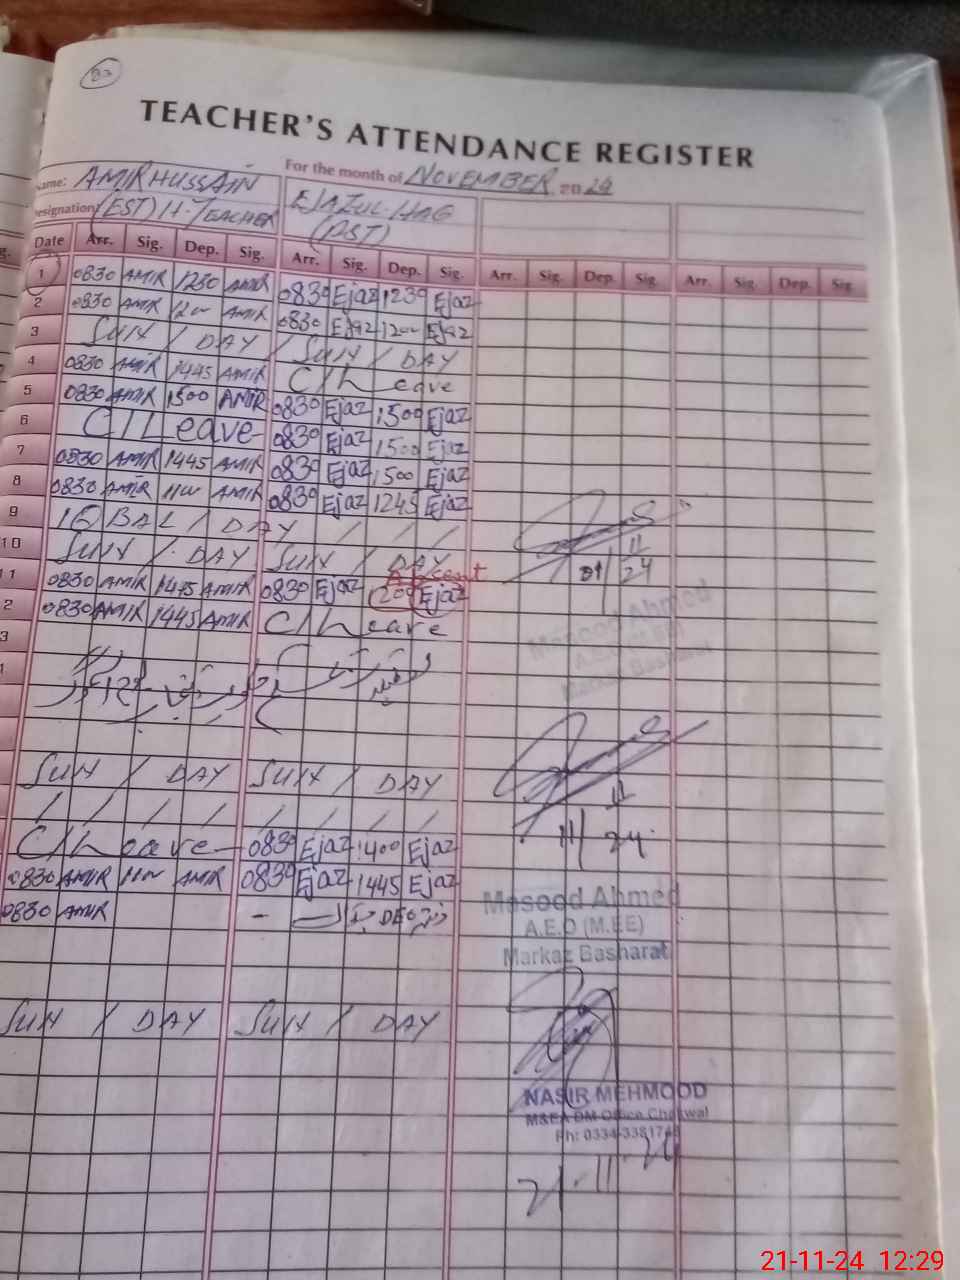 TEACHER'S ATTENDANCE REGISTER
Name: AMIR HUSSAIN For the month of NOVEMBER 2024
Designation (EST) H-TEACHER EJAZUL-HAQ (PST)
Date Arr. Sig. Dep. Sig. Arr. Sig. Dep. Sig. Arr. Sig. Dep. Sig. Arr. Sig. Dep. Sig.
1 0830 AMIR 1230 AMIR 0830 Ejaz 1230 Ejaz
2 0830 AMIR 1200 AMIR 0830 Ejaz 1200 Ejaz
3 SUN / DAY / SUN / DAY
4 0830 AMIR 1445 AMIR C/Leave
5 0830 AMIR 1500 AMIR 0830 Ejaz 1500 Ejaz
6 C/Leave 0830 Ejaz 1500 Ejaz
7 0830 AMIR 1445 AMIR 0830 Ejaz 1500 Ejaz
8 0830 AMIR 1100 AMIR 0830 Ejaz 1245 Ejaz
9 IQBAL / DAY / / /
10 SUN / DAY SUN / DAY
Absent
11 0830 AMIR 1445 AMIR 0830 Ejaz 200 Ejaz
2 0830 AMIR 1445 AMIR C/Leave
3
SUN / DAY SUN / DAY
/ / / / / / / /
C/Leave 0830 Ejaz 1400 Ejaz
0830 AMIR 1100 AMIR 0830 Ejaz 1445 Ejaz
0830 AMIR - DEO
SUN / DAY SUN / DAY
11
24
Masood Ahmed
A.E.O (M.EE)
Markaz Basharat
11/11
24
Masood Ahmed
A.E.O (M.EE)
Markaz Basharat
NASIR MEHMOOD
M&EA DM Office Chakwal
Ph: 0334-33817
21-11-24
21-11-24 12:29